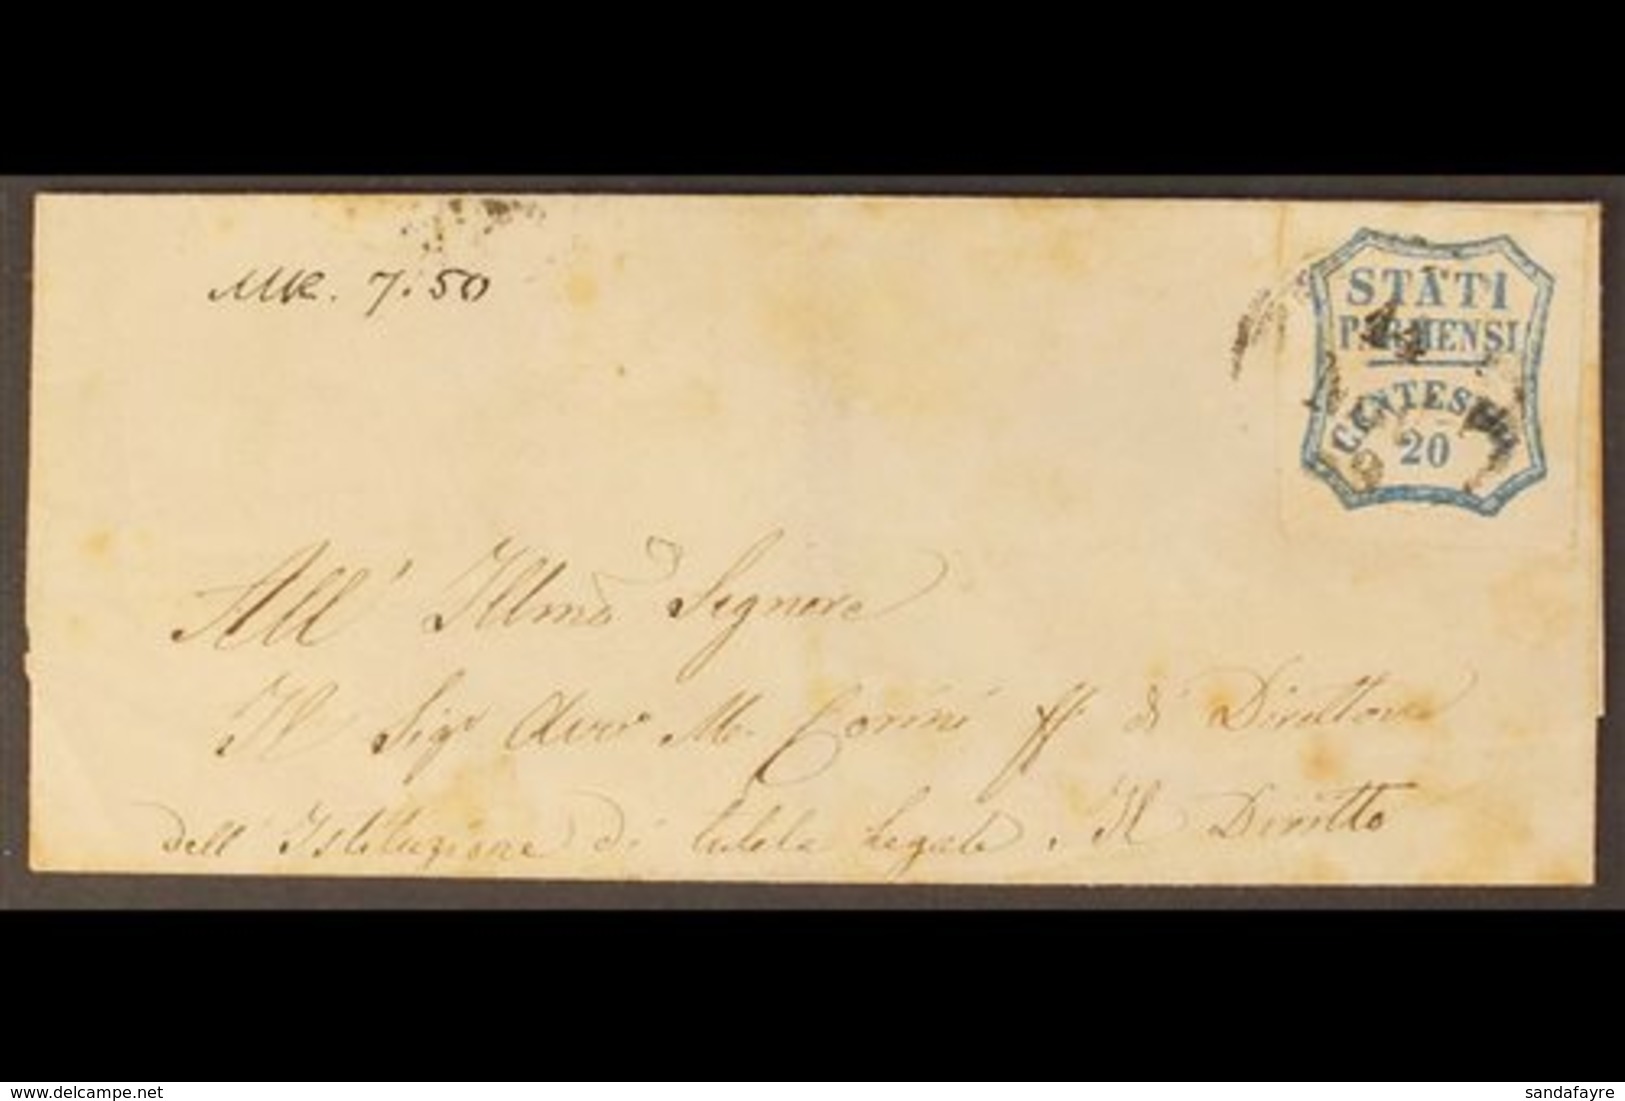 MK. 7.50
STATI
PARMENSI
CENTESIMI
20
All' Illmo Signore
Il Sigr Avvo M. Corini ff. di Direttore
dell' Istituzione di tutela legale. Il Diritto
© delcampe.net
sandafayre